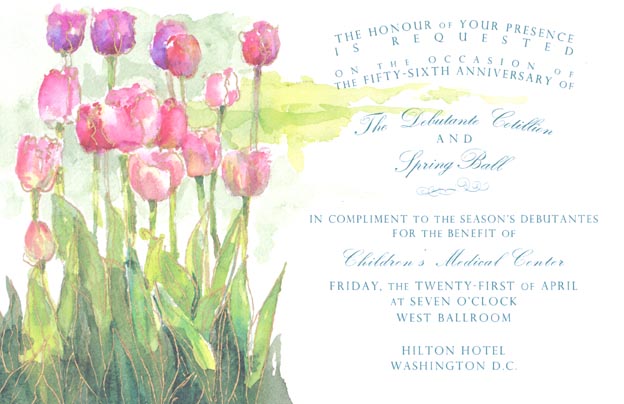 THE HONOUR OF YOUR PRESENCE
IS REQUESTED
ON THE OCCASION OF
THE FIFTY-SIXTH ANNIVERSARY OF
The Debutante Cotillion
AND
Spring Ball
IN COMPLIMENT TO THE SEASON'S DEBUTANTES
FOR THE BENEFIT OF
Children's Medical Center
FRIDAY, THE TWENTY-FIRST OF APRIL
AT SEVEN O'CLOCK
WEST BALLROOM
HILTON HOTEL
WASHINGTON D.C.